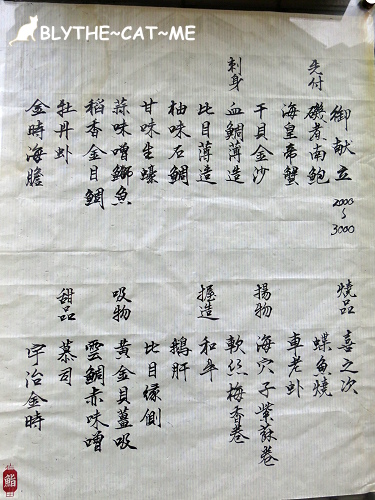 BLYTHE~CAT~ME
御献立
2000~3000
先付
磯煮南鮑
海皇帝蟹
干貝金沙
刺身
血鯛薄造
比目薄造
柚味石鯛
甘味生蠔
蒜味噌鰤魚
稻香金目鯛
牡丹虾
金時海膽
燒品
喜之次
蝶魚燒
車老虾
揚物
海穴子紫蘇卷
軟絲梅香卷
握造
和牛
鵝肝
比目緣側
吸物
黃金貝薑吸
雲鯛赤味噌
甜品
慕司
宇治金時
鮨